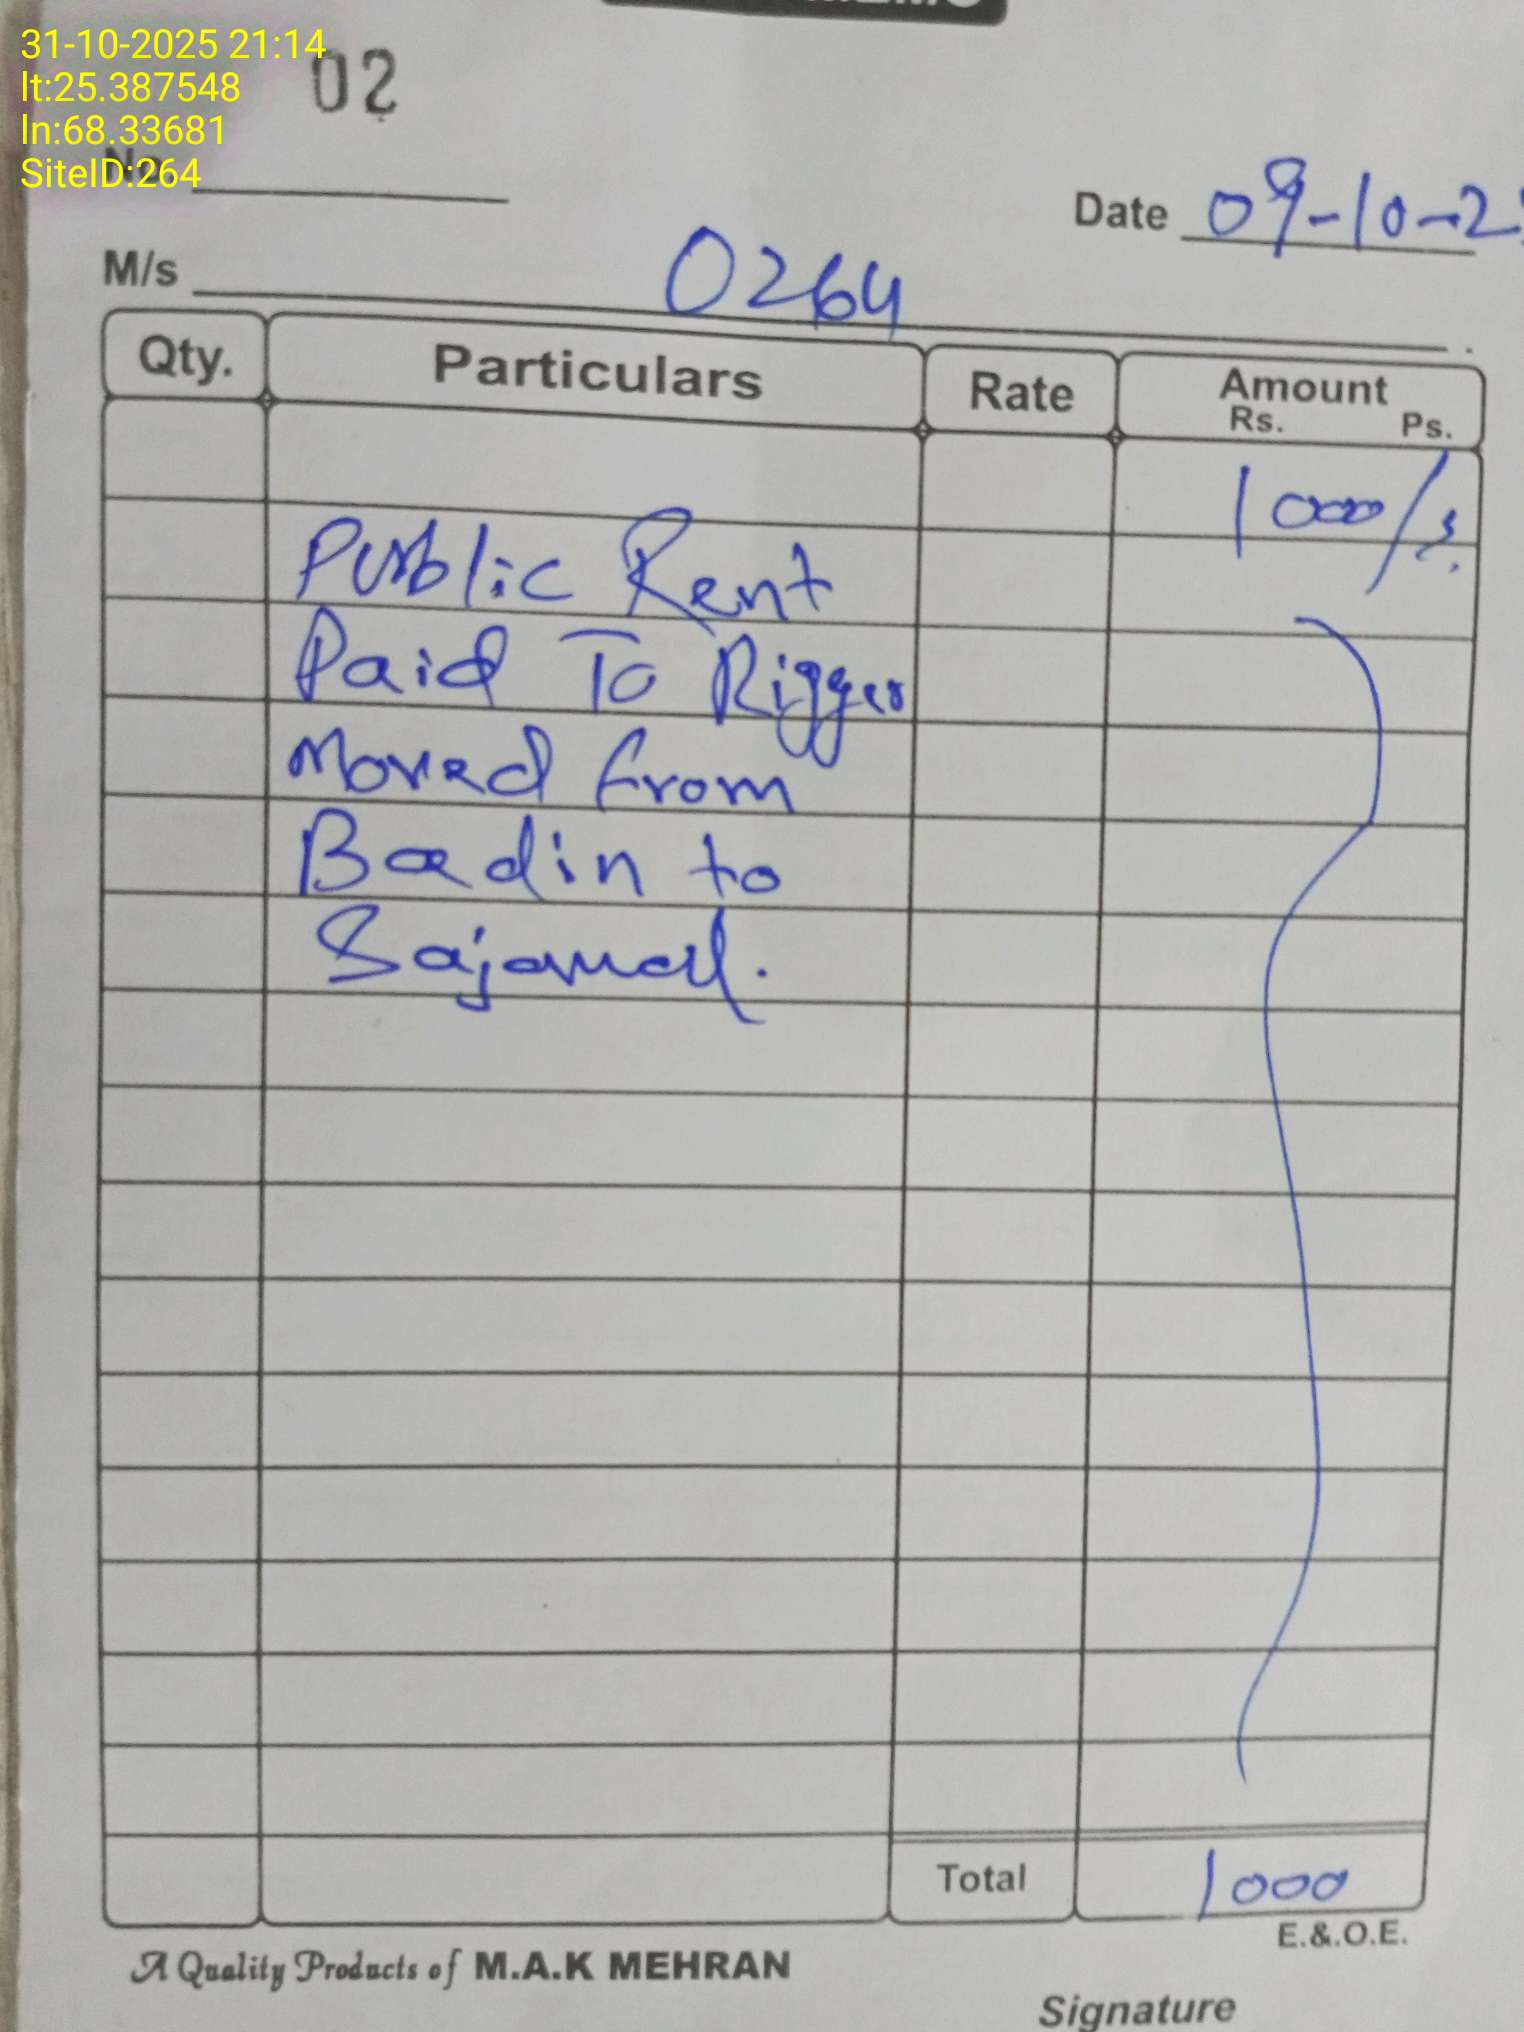 31-10-2025 21:14
lt:25.387548
ln:68.33681
SiteID:264
02
No.
Date 09-10-2
M/s 0264
Qty. Particulars Rate Amount
Rs. Ps.
1000/
Public Rent
Paid To Rigger
Moved from
Badin to
Sajawal.
Total 1000
E.&.O.E.
A Quality Products of M.A.K MEHRAN
Signature